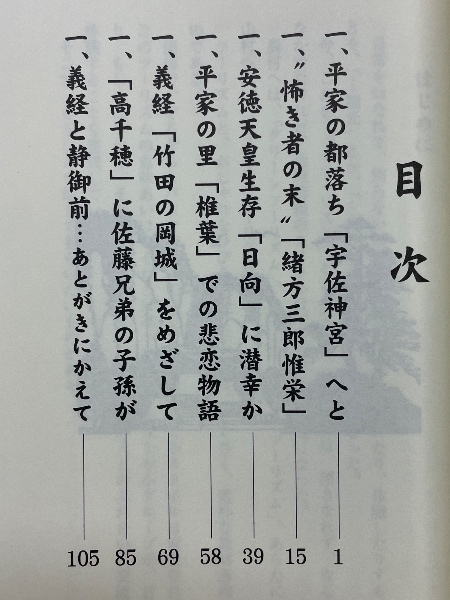 目次
一、平家の都落ち「宇佐神宮」へと 1
一、〝怖き者の末〟「緒方三郎惟栄」 15
一、安徳天皇生存「日向」に潜幸か 39
一、平家の里「椎葉」での悲恋物語 58
一、義経「竹田の岡城」をめざして 69
一、「高千穂」に佐藤兄弟の子孫が 85
一、義経と静御前…あとがきにかえて 105